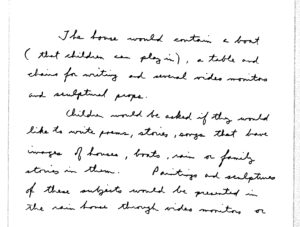 The house would contain a boat
( that children can play in ), a table and
chairs for writing and several video monitors
and sculptural props.
Children would be asked if they would
like to write poems, stories, songs that have
images of houses, boats, rain or family
stories in them. Paintings and sculptures
of these subjects would be presented in
the rain house through video monitors or